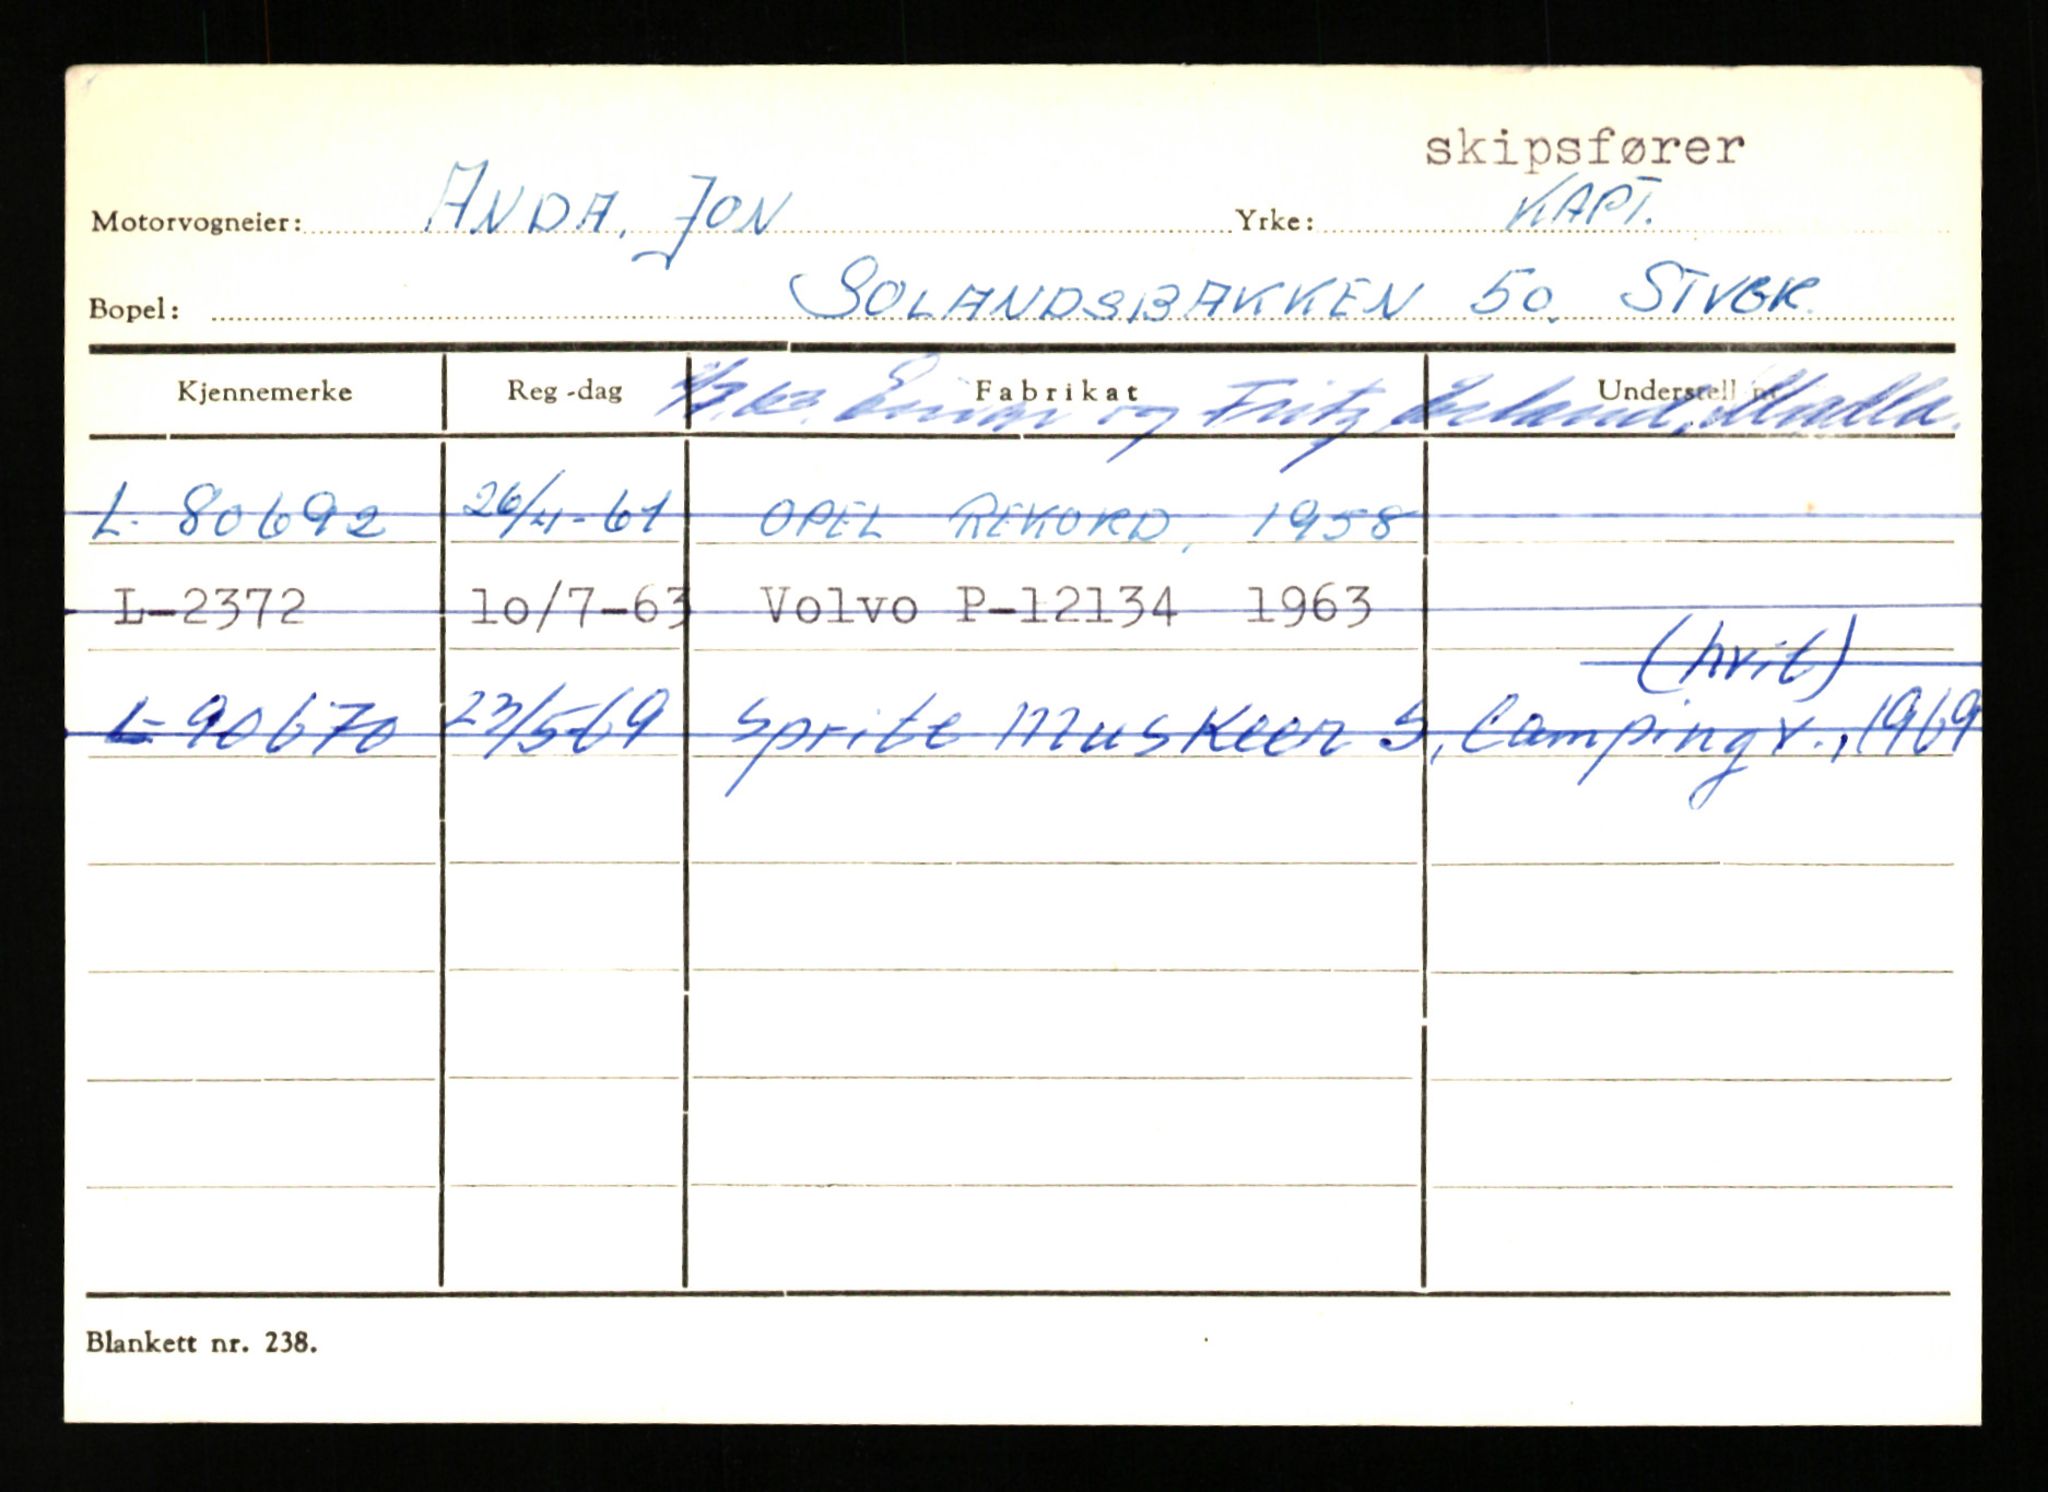 skipsfører
Motorvogneier: ANDA, JON Yrke: KAPT.
Bopel: SOLANDSBAKKEN 50. STVGR.
Kjennemerke Reg-dag Fabrikat Understell nr.
og Fritz
L- 80692 26/4-61 OPEL REKORD, 1958
L-2372 10/7-63 Volvo P-12134 1963
(hvit)
L-90670 23/5-69 Sprite Muskeer S, Campingv., 1969
Blankett nr. 238.